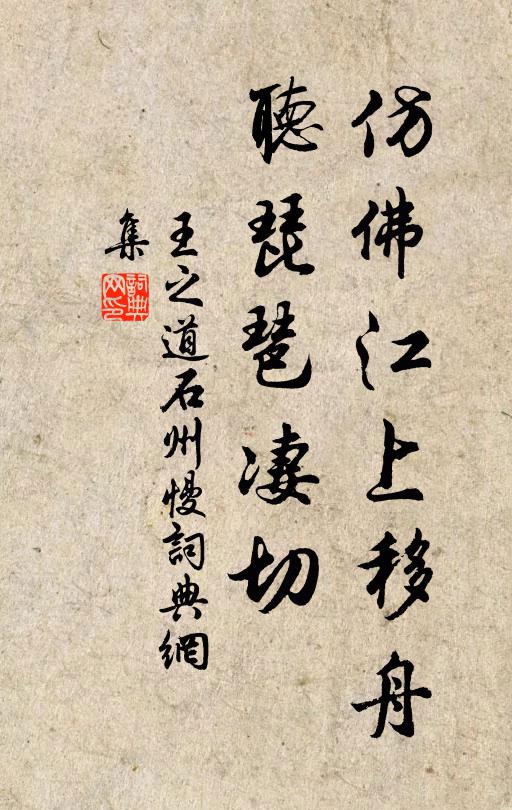 仿佛江上移舟
聽琵琶凄切
王之道石州慢詞典網
集
詞典網印